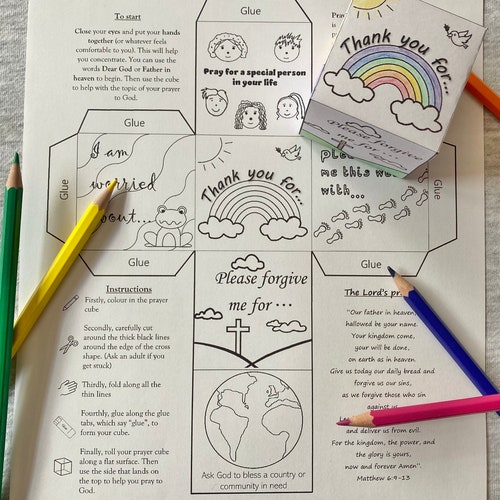 To start
Close your eyes and put your hands
together (or whatever feels
comfortable to you). This will help
you concentrate. You can use the
words Dear God or Father in
heaven to begin. Then use the cube
to help with the topic of your prayer
to God.
Glue
Pray for a special person
in your life
Thank you for...
Please forgive
me for...
Glue
Glue
I am
worried
about...
Thank you for...
me this we
with...
Glue
Glue
Glue
Instructions
Firstly, colour in the prayer
cube
Secondly, carefully cut
around the thick black lines
around the edge of the cross
shape. (Ask an adult if you
get stuck)
Thirdly, fold along all the
thin lines
Fourthly, glue along the glue
tabs, which say "glue", to
form your cube.
Finally, roll your prayer cube
along a flat surface. Then
use the side that lands on
the top to help you pray to
God.
Please forgive
me for ...
Ask God to bless a country or
community in need
The Lord's
"Our father in heaven,
hallowed be your name.
Your kingdom come,
your will be done,
on earth as in heaven.
Give us today our daily bread and
forgive us our sins,
as we forgive those who sin
against us.
and deliver us from evil.
For the kingdom, the power, and
the glory is yours,
now and forever Amen".
Matthew 6:9-13